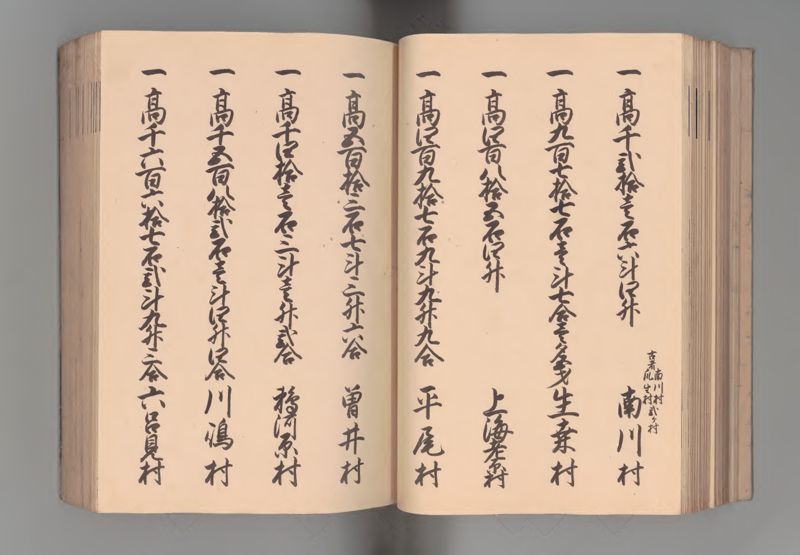 一 高千弐拾壱石六斗四升 南川村
古者 南川村
生村弐ケ村
一 高九百七拾七石壱斗七合 生桒村
一 高四百八拾五石四升 上海老原村
一 高四百九拾七石九斗九升九合 平尾村
一 高五百拾三石七斗三升六合 曽井村
一 高千四拾壱石三斗壱升弐合 河原村
一 高千五百八拾弐石壱斗四升四合 川嶋村
一 高千六百六拾七石弐斗九升三合 六呂見村